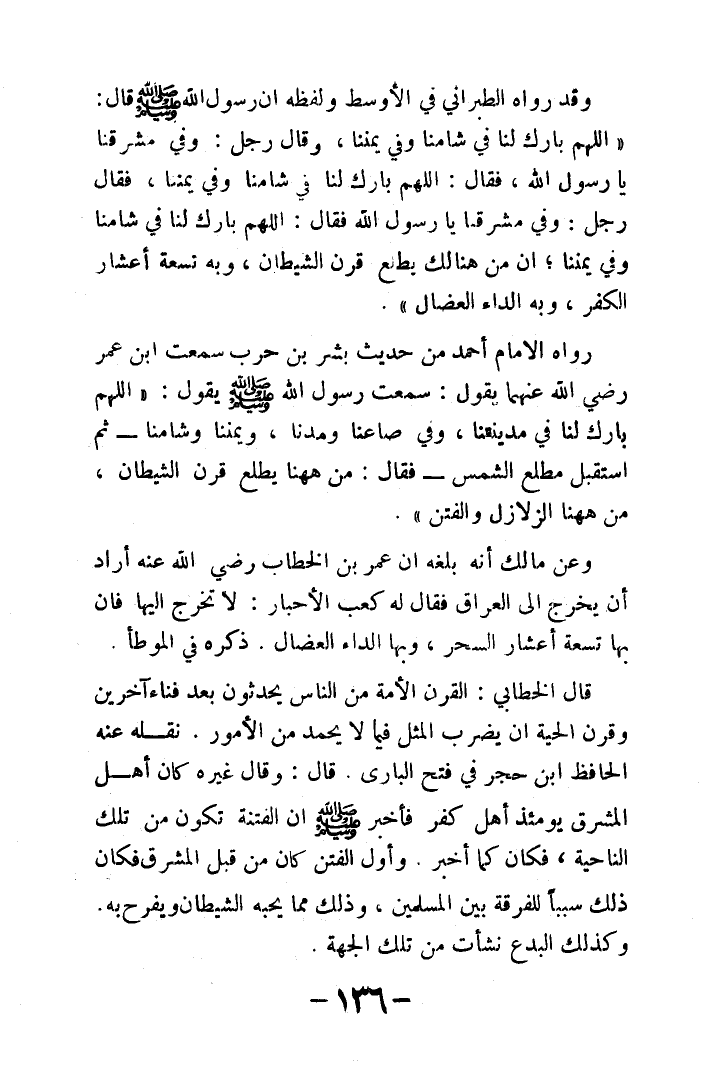 وقد رواه الطبراني في الأوسط ولفظه ان رسول الله ﷺ قال :
« اللهم بارك لنا في شامنا وفي يمننا ، وقال رجل : وفي مشرقنا
يا رسول الله ، فقال : اللهم بارك لنا في شامنا وفي يمننا ، فقال
رجل : وفي مشرقنا يا رسول الله فقال : اللهم بارك لنا في شامنا
وفي يمننا ؛ ان من هنالك يطلع قرن الشيطان ، وبه تسعة أعشار
الكفر ، وبه الداء العضال » .
رواه الامام أحمد من حديث بشر بن حرب سمعت ابن عمر
رضي الله عنهما يقول : سمعت رسول الله ﷺ يقول : « اللهم
بارك لنا في مدينتنا ، وفي صاعنا ومدنا ، ويمننا وشامنا — ثم
استقبل مطلع الشمس — فقال : من ههنا يطلع قرن الشيطان ،
من ههنا الزلازل والفتن » .
وعن مالك أنه بلغه ان عمر بن الخطاب رضي الله عنه أراد
أن يخرج الى العراق فقال له كعب الأحبار : لا تخرج اليها فان
بها تسعة أعشار السحر ، وبها الداء العضال . ذكره في الموطأ .
قال الخطابي : القرن الأمة من الناس يحدثون بعد فناء آخرين
وقرن الحية ان يضرب المثل فيما لا يحمد من الأمور . نقله عنه
الحافظ ابن حجر في فتح البارى . قال : وقال غيره كان أهل
المشرق يومئذ أهل كفر فأخبر ﷺ ان الفتنة تكون من تلك
الناحية ، فكان كما أخبر . وأول الفتن كان من قبل المشرق فكان
ذلك سبباً للفرقة بين المسلمين ، وذلك مما يحبه الشيطان ويفرح به .
وكذلك البدع نشأت من تلك الجهة .
- ١٣٦ -